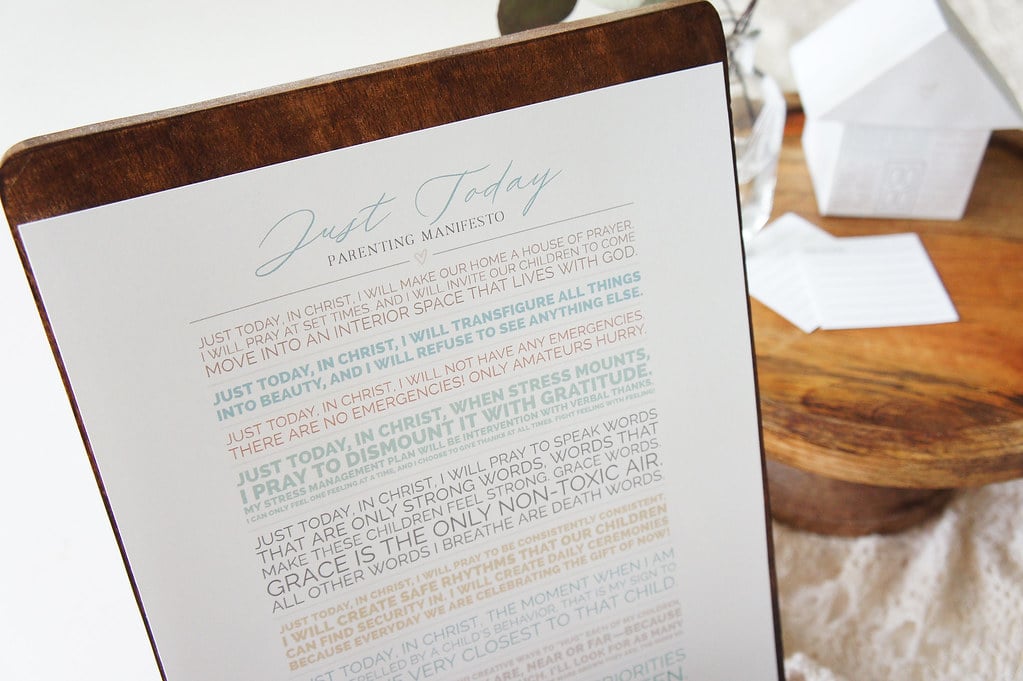 Just Today
PARENTING MANIFESTO
JUST TODAY, IN CHRIST, I WILL MAKE OUR HOME A HOUSE OF PRAYER.
I WILL PRAY AT SET TIMES, AND I WILL INVITE OUR CHILDREN TO COME
MOVE INTO AN INTERIOR SPACE THAT LIVES WITH GOD.
JUST TODAY, IN CHRIST, I WILL TRANSFIGURE ALL THINGS
INTO BEAUTY, AND I WILL REFUSE TO SEE ANYTHING ELSE.
JUST TODAY, IN CHRIST, I WILL NOT HAVE ANY EMERGENCIES.
THERE ARE NO EMERGENCIES! ONLY AMATEURS HURRY.
JUST TODAY, IN CHRIST, WHEN STRESS MOUNTS,
I PRAY TO DISMOUNT IT WITH GRATITUDE.
MY STRESS MANAGEMENT PLAN WILL BE INTERVENTION WITH VERBAL THANKS.
I CAN ONLY FEEL ONE FEELING AT A TIME, AND I CHOOSE TO GIVE THANKS AT ALL TIMES. FIGHT FEELING WITH FEELING!
JUST TODAY, IN CHRIST, I WILL PRAY TO SPEAK WORDS
THAT ARE ONLY STRONG WORDS, WORDS THAT
MAKE THESE CHILDREN FEEL STRONG. GRACE WORDS.
GRACE IS THE ONLY NON-TOXIC AIR.
ALL OTHER WORDS I BREATHE ARE DEATH WORDS.
JUST TODAY, IN CHRIST, I WILL PRAY TO BE CONSISTENTLY CONSISTENT.
I WILL CREATE SAFE RHYTHMS THAT OUR CHILDREN
CAN FIND SECURITY IN. I WILL CREATE DAILY CEREMONIES
BECAUSE EVERYDAY WE ARE CELEBRATING THE GIFT OF NOW!
JUST TODAY, IN CHRIST, THE MOMENT WHEN I AM
REPELLED BY A CHILD'S BEHAVIOR, THAT IS MY SIGN TO
VERY CLOSEST TO THAT CHILD
CREATIVE WAYS TO "HUG" EACH OF MY CHILDREN
NEAR OR FAR—BECAUSE
I'LL LOOK FOR AS MANY
PRIORITIES